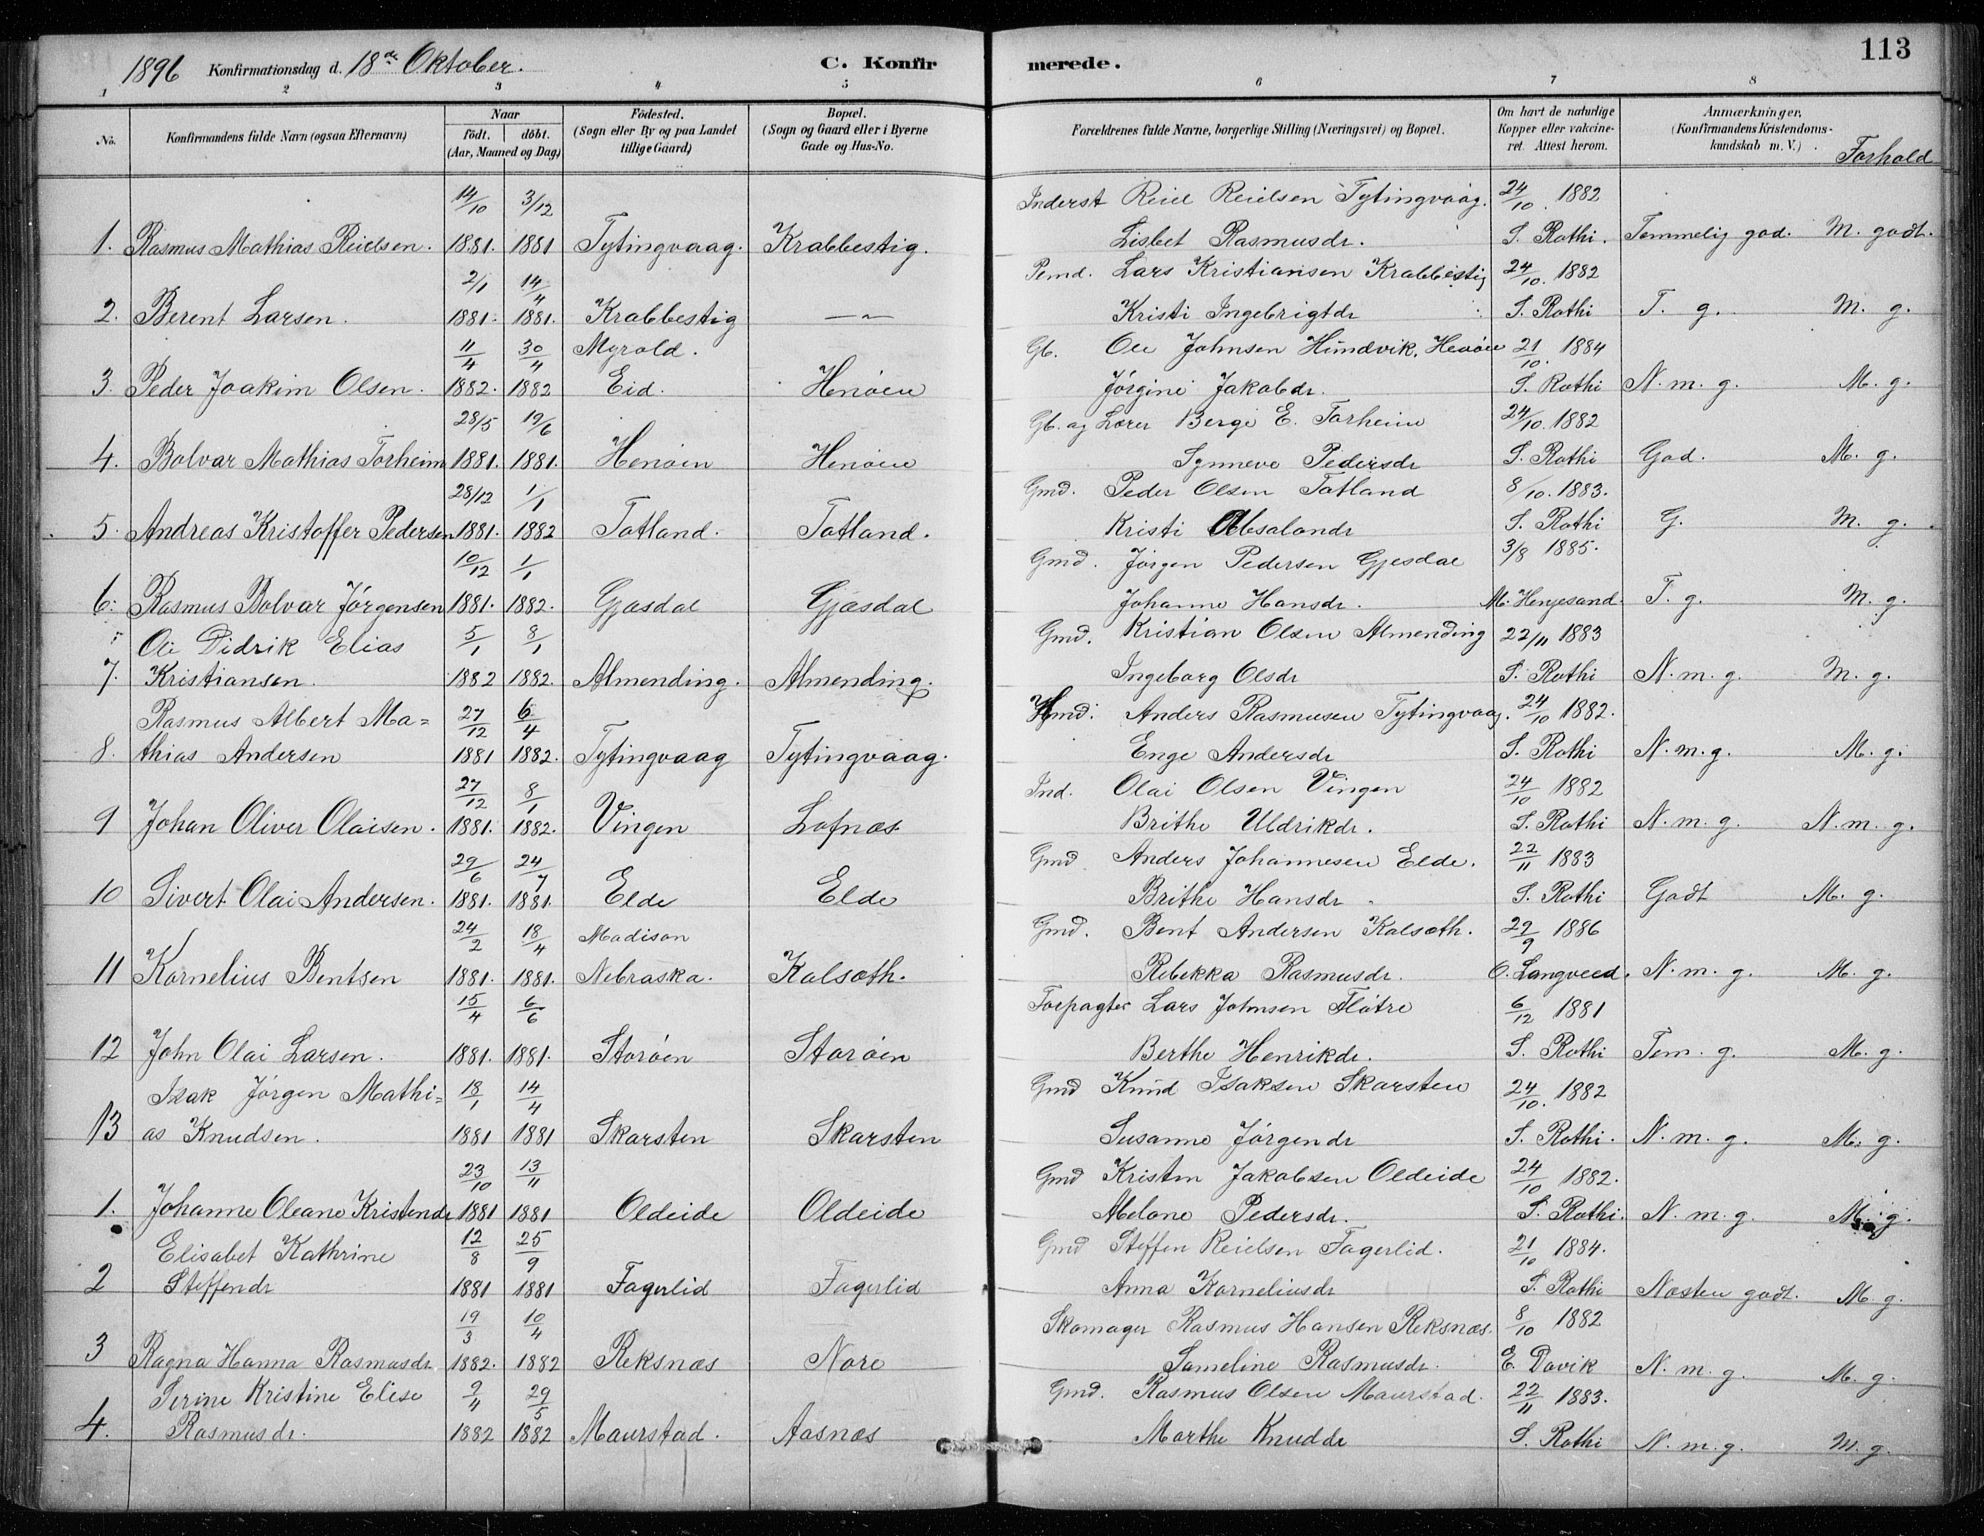 1896 Konfirmationsdag d. 18de Oktober. C. Konfir merede. 113
1 2 3 4 5 6 7 8
No. Konfirmandens fulde Navn (ogsaa Efternavn) Naar født. døbt. (Aar, Maaned og Dag) Fødested. (Sogn eller By og paa Landet tillige Gaard) Bopæl. (Sogn og Gaard eller i Byerne Gade og Hus-No. Forældrenes fulde Navne, borgerlige Stilling (Næringsvei) og Bopæl. Om havt de naturlige Kopper eller vakcineret. Attest herom. Anmærkninger, (Konfirmandens Kristendomskundskab m. V.) Forhold
14/10 3/12 Inderst Reiel Reielsen Tytingvaag. 24/10. 1882
1. Rasmus Mathias Reielsen. 1881. 1881 Tytingvaag. Krabbestig. Lisbet Rasmusdr. S. Rothi. Temmelig god. M. godt.
2/1 14/4 Lars Kristiansen Krabbestig 24/10. 1882
2. Berent Larsen. 1881. 1881. Krabbestig —"— Kristi Ingebrigtdr S. Rothi T. g. M. g.
11/4 30/4 Myrold. Gb. Ole Johnsen Hundvik, Henøen 21/10. 1884
3. Peder Joakim Olsen. 1882. 1882 Eid. Henøen Jørgine Jakobdr. S. Rothi N. m. g. M. g.
28/5 19/6 Gb. og Lærer Berge E. Torheim 24/10. 1882
4. Bolvar Mathias Torheim 1881. 1881. Henøen Henøen Synneve Pedersdr S. Rothi God. M. g.
28/12 1/1 Gmd. Peder Olsen Totland 8/10. 1883.
5. Andreas Kristoffer Pedersen 1881. 1882 Totland. Totland. Kristi Absalondr S. Rothi G. M. g.
10/12 1/1 Gmd. Jørgen Pedersen Gjesdal 3/8 1885.
6. Rasmus Bolvar Jørgensen 1881. 1882. Gjæsdal Gjæsdal Johanne Hansdr. M. Henjesand. T. g. M. g.
Ole Didrik Elias 5/1 8/1 Gmd. Kristian Olsen Almending 22/11 1883
7. Kristiansen. 1882 1882. Almending. Almending. Ingeborg Olsdr S. Rothi N. m. g. M. g.
Rasmus Albert Ma= 27/12 6/4 Hmd. Anders Rasmusen Tytingvaag. 24/10 1882.
8. thias Andersen 1881 1882. Tytingvaag Tytingvaag. Enge Andersdr S. Rothi N. m. g. M. g.
27/12 8/1 Ind. Olai Olsen Vingen 24/10 1882
9 Johan Oliver Olaisen. 1881. 1882. Vingen Lofnæs Brithe Uldrikdr. S. Rothi N. m. g. N. m. g.
29/6 24/7 Gmd Anders Johannesen Elde. 22/11 1883
10 Sivert Olai Andersen. 1881. 1881. Elde Elde Brithe Hansdr S. Rothi Godt M. g.
24/2 18/4 Madison Gmd. Bent Andersen Kalsæth. 29/9 1886
11 Kornelius Bentsen 1881. 1881. Nebraska. Kalsæth. Rebekka Rasmusdr. O. Langveed. N. m. g. M. g.
15/4 6/6 Forpagter Lars Johnsen Fløtre 6/12 1881
12 John Olai Larsen. 1881. 1881. Storøen Storøen Berthe Henrikdr. S. Rothi Tem. g. M. g.
Isak Jørgen Mathi= 18/1 14/4 Gmd Knud Isaksen Skarsten 24/10. 1882
13 as Knudsen. 1881 1881 Skarsten Skarsten Susanne Jørgendr S. Rothi. N. m. g. M. g.
23/10 13/11 Gmd Kristen Jakobsen Oldeide 24/10 1882.
1. Johanne Oleane Kristendr 1881 1881 Oldeide Oldeide Melone Pedersdr. S. Rothi. N. m. g. M. g.
Elisabet Kathrine 12/8 25/9 Gmd Steffen Reielsen Fagerlid. 21/10 1884.
2 Steffendr 1881 1881 Fagerlid Fagerlid Anna Korneliusdr S. Rothi Næsten godt. M. g.
19/3 10/4 Skomager Rasmus Hansen Reksnæs. 8/10 1882
3 Ragna Hanna Rasmusdr. 1882. 1882 Reksnæs Nore Sameline Rasmusdr. E. Davik N. m. g. M. g.
Serine Kristine Elise 9/4 29/5 Gmd. Rasmus Olsen Maurstad. 22/11 1883.
4. Rasmusdr. 1882 1882 Maurstad. Aasnæs Marthe Knuddr S. Rothi N. m. g. M. g.